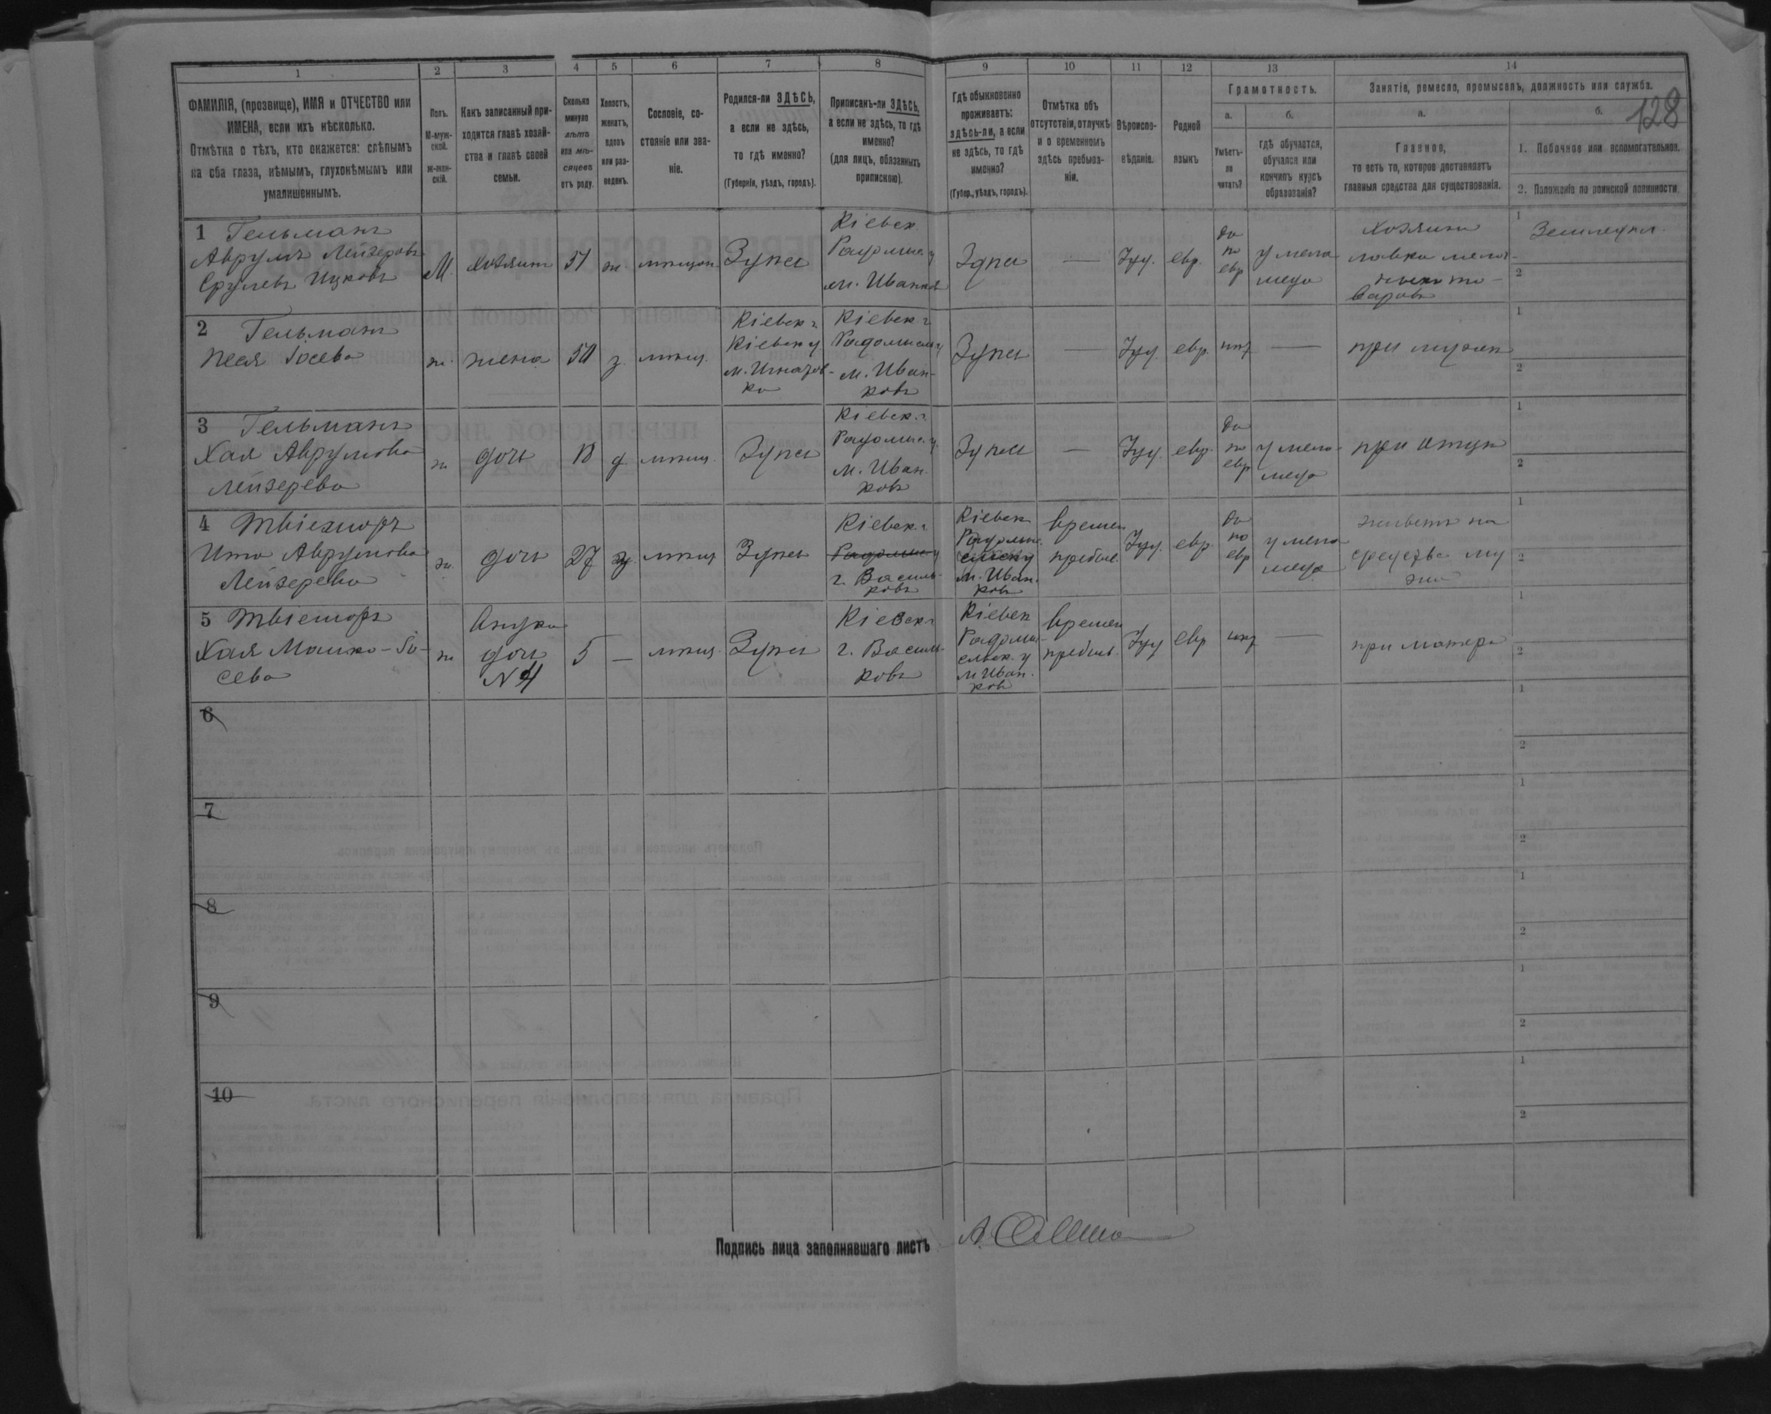 128
1
2
3
4
5
6
7
8
9
10
11
12
13
14
ФАМИЛІЯ, (прозвище), ИМЯ и ОТЧЕСТВО или
ИМЕНА, если ихъ нѣсколько.
Отмѣтка о тѣхъ, кто окажется: слѣпымъ
на оба глаза, нѣмымъ, глухонѣмымъ или
умалишеннымъ.
Полъ.
М-муж-
ской.
Ж-жен-
скій.
Какъ записанный при-
ходится главѣ хозяй-
ства и главѣ своей
семьи.
Сколько
минуло
лѣтъ
или мѣ-
сяцевъ
отъ роду.
Холостъ,
женатъ,
вдовъ
или раз-
веденъ.
Сословіе, со-
стояніе или зва-
ніе.
Родился-ли ЗДѢСЬ,
а если не здѣсь,
то гдѣ именно?
(Губернія, уѣздъ, городъ).
Приписанъ-ли ЗДѢСЬ,
а если не здѣсь, то гдѣ
именно?
(для лицъ, обязанныхъ
припискою).
Гдѣ обыкновенно
проживаетъ:
здѣсь-ли, а если
не здѣсь, то гдѣ
именно?
(Губер., уѣздъ, городъ).
Отмѣтка объ
отсутствіи, отлучкѣ
и о временномъ
здѣсь пребыва-
ніи.
Вѣроиспо-
вѣданіе.
Родной
языкъ
Грамотность.
а.
Умѣетъ-
ли
читать?
б.
гдѣ обучается,
обучался или
кончилъ курсъ
образованія?
Занятіе, ремесло, промыселъ, должность или служба.
а.
Главное,
то есть то, которое доставляетъ
главныя средства для существованія.
б.
1. Побочное или вспомогательное.
2. Положеніе по воинской повинности
1 Гельманъ
Аврумъ Лейзеровъ
Срулевъ Ицковъ
М.
хозяинъ
51
ж.
мѣщан.
Здѣсь
Кіевск.
Радомыс. у
м. Иванков
Здѣсь
—
Іуд.
евр.
да
по
евр
у мела-
меда
Хозяинъ
лавки мелоч-
ныхъ то-
варовъ
Земледѣл.
2 Гельманъ
Песя Іосева
ж.
жена
50
з.
мѣщ.
Кіевск. г
Кіевск у
м. Игнатов-
ка
Кіевск. г
Радомыс. у
м. Иван-
ковъ
Здѣсь
—
Іуд.
евр.
нѣт
—
при мужѣ
3 Гельманъ
Хая Аврумова
Лейзерева
ж
дочь
18
д
мѣщ.
Здѣсь
Кіевск. г
Радомыс. у
м. Иван-
ковъ
Здѣсь
—
Іуд.
евр.
да
по
евр
у мела-
меда
при отцѣ
4
Ита Аврумова
Лейзерева
ж.
дочь
27
з
мѣщ
Здѣсь
Кіевск. г
Радомыс. у
г. Василь-
ковъ
Кіевск
Радомы-
сльск у
м. Иван-
ковъ
времен
пребыв.
Іуд.
евр.
да
по
евр
у мела-
меда
живетъ на
средства му
жа
5
Хая Мошко-Іо-
сева
ж
внучка
дочь
№ 4
5
—
мѣщ.
Здѣсь
Кіевск. г
г. Василь-
ковъ
Кіевск
Радомы-
сльск. у
м Иван-
ков
времен
пребыв.
Іуд
евр
нѣт
—
при матери
6
7
8
9
10
Подпись лица заполнявшаго листъ